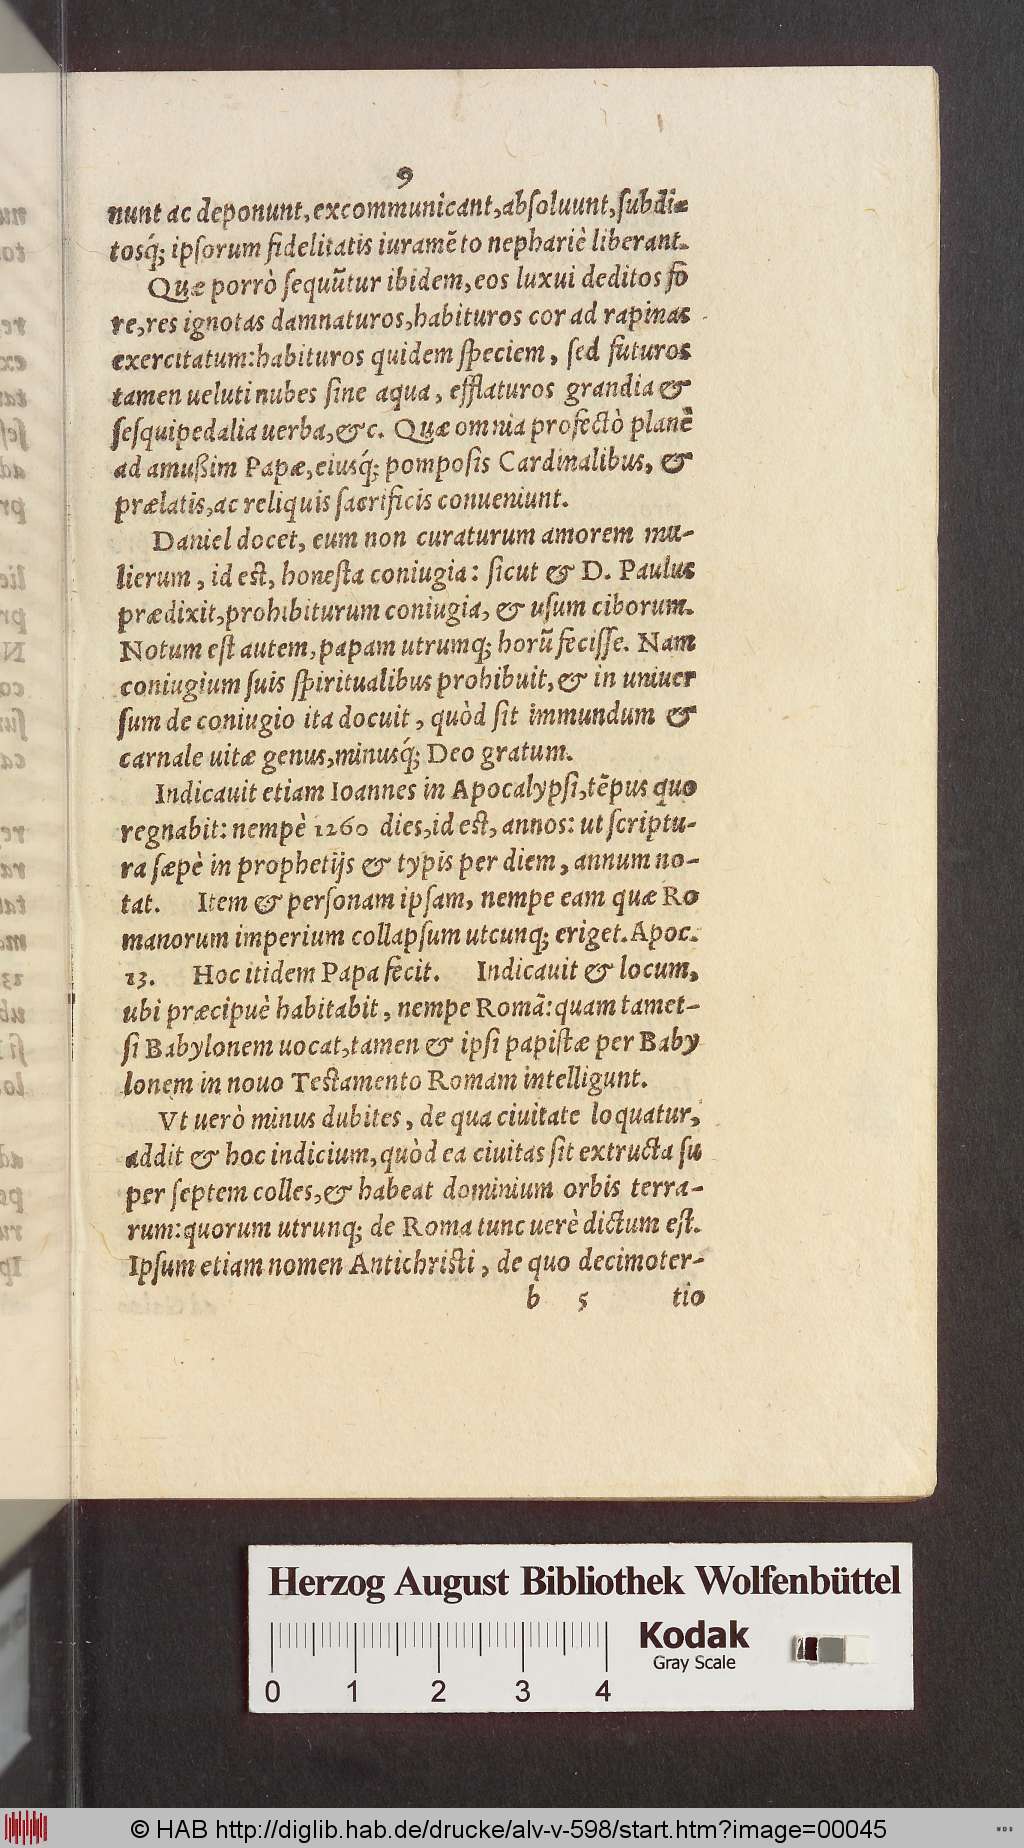 9
nunt ac deponunt, excommunicant, abſoluunt, ſubdi-
tosq́; ipſorum fidelitatis iuramẽto nephariè liberant.
Quæ porrò ſequũtur ibidem, eos luxui deditos fo
re, res ignotas damnaturos, habituros cor ad rapinas
exercitatum: habituros quidem ſpeciem, ſed futuros
tamen ueluti nubes ſine aqua, efflaturos grandia &
ſeſquipedalia uerba, &c. Quæ omnia profectò planè
ad amußim Papæ, eiusq́; pompoſis Cardinalibus, &
prælatis, ac reliquis ſacrificis conueniunt.
Daniel docet, eum non curaturum amorem mu-
lierum, id eſt, honeſta coniugia: ſicut & D. Paulus
prædixit, prohibiturum coniugia, & uſum ciborum.
Notum eſt autem, papam utrumq; horũ feciſſe. Nam
coniugium ſuis ſpiritualibus prohibuit, & in uniuer
ſum de coniugio ita docuit, quòd ſit immundum &
carnale uitæ genus, minusq́; Deo gratum.
Indicauit etiam Ioannes in Apocalypſi, tẽpus quo
regnabit: nempè 1260 dies, id eſt, annos: ut ſcriptu-
ra ſæpè in prophetijs & typis per diem, annum no-
tat. Item & perſonam ipſam, nempe eam quæ Ro
manorum imperium collapſum utcunq; eriget. Apoc.
13. Hoc itidem Papa fecit. Indicauit & locum,
ubi præcipuè habitabit, nempe Romã: quam tamet-
ſi Babylonem uocat, tamen & ipſi papiſtæ per Baby
lonem in nouo Teſtamento Romam intelligunt.
Vt uerò minus dubites, de qua ciuitate loquatur,
addit & hoc indicium, quòd ea ciuitas ſit extructa ſu
per ſeptem colles, & habeat dominium orbis terra-
rum: quorum utrunq; de Roma tunc uerè dictum eſt.
Ipſum etiam nomen Antichriſti, de quo decimoter-
b 5 tio
Herzog August Bibliothek Wolfenbüttel
Kodak
Gray Scale
0 1 2 3 4
© HAB http://diglib.hab.de/drucke/alv-v-598/start.htm?image=00045